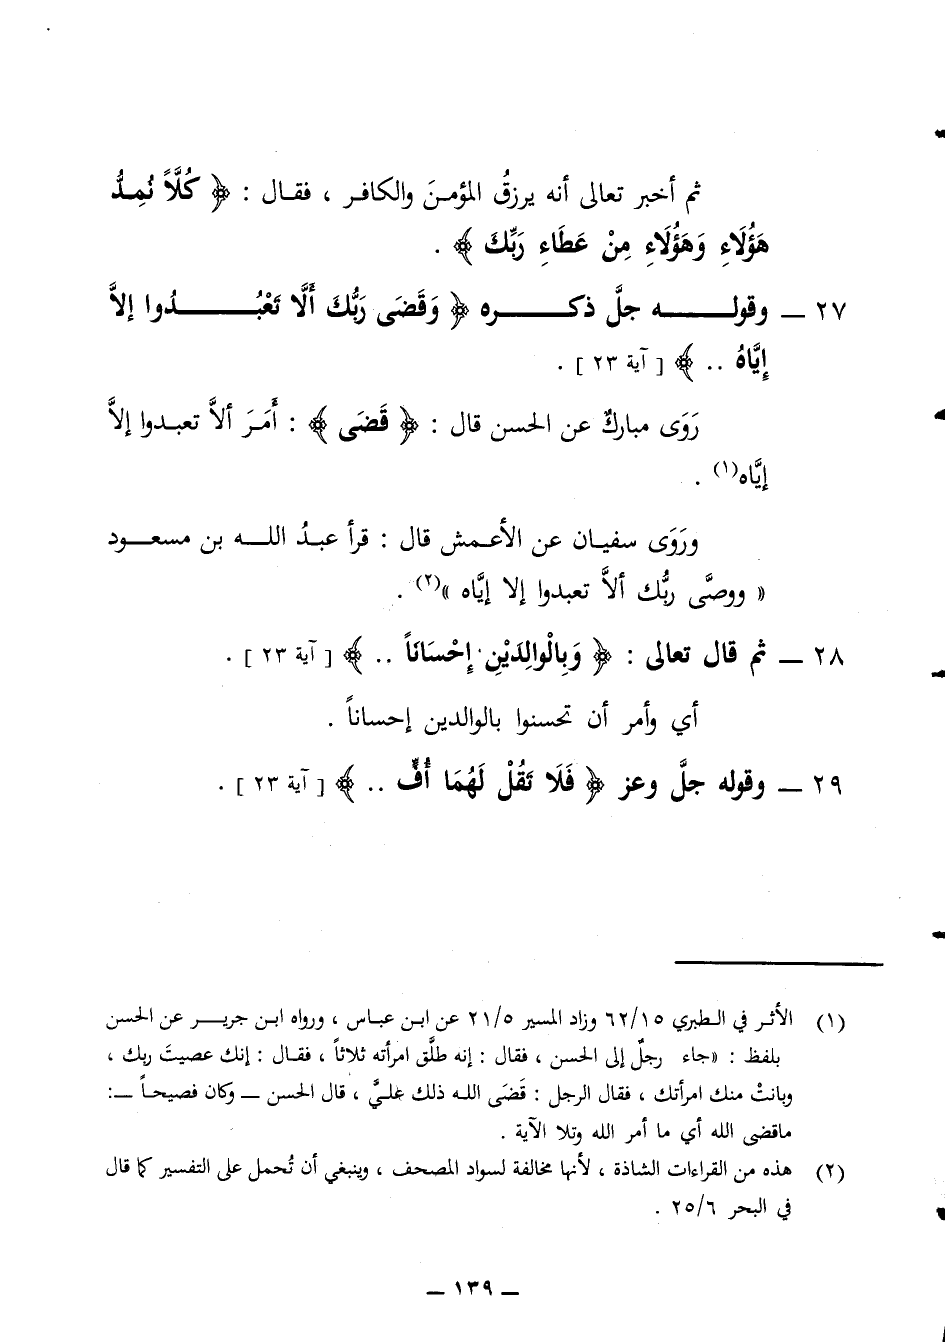 ثم أخبر تعالى أنه يرزقُ المؤمنَ والكافر ، فقال : ﴿ كُلَّاً نُمِدُّ
هَؤُلَاءِ وَهَؤُلَاءِ مِنْ عَطَاءِ رَبِّكَ ﴾ .
٢٧ ــ وقوله جلَّ ذكره ﴿ وَقَضَى رَبُّكَ أَلَّا تَعْبُدُوا إلاَّ
إِيَّاهُ .. ﴾ [ آية ٢٣ ] .
رَوَى مباركٌ عن الحسن قال : ﴿ قَضَى ﴾ : أَمَرَ ألاَّ تعبدوا إلاَّ
إيَّاه(١) .
ورَوَى سفيان عن الأعمش قال : قرأ عبدُ الله بن مسعود
« ووصَّى ربُّك ألاَّ تعبدوا إلا إيَّاه »(٢) .
٢٨ ــ ثم قال تعالى : ﴿ وَبِالْوالِدَيْنِ إِحْسَانَاً .. ﴾ [ آية ٢٣ ] .
أي وأمر أن تحسنوا بالوالدين إحساناً .
٢٩ ــ وقوله جلَّ وعز ﴿ فَلَا تَقُلْ لَهُمَا أُفٍّ .. ﴾ [ آية ٢٣ ] .
(١) الأثر في الطبري ٦٢/١٥ وزاد المسير ٢١/٥ عن ابن عباس ، ورواه ابن جرير عن الحسن
بلفظ : «جاء رجلٌ إلى الحسن ، فقال : إنه طلَّق امرأته ثلاثاً ، فقال : إنك عصيتَ ربك ،
وبانتْ منك امرأتك ، فقال الرجل : قَضَى الله ذلك عليَّ ، قال الحسن ــ وكان فصيحاً ــ:
ماقضى الله أي ما أمر الله وتلا الآية .
(٢) هذه من القراءات الشاذة ، لأنها مخالفة لسواد المصحف ، وينبغي أن تُحمل على التفسير كما قال
في البحر ٢٥/٦ .
ــ ١٣٩ ــ